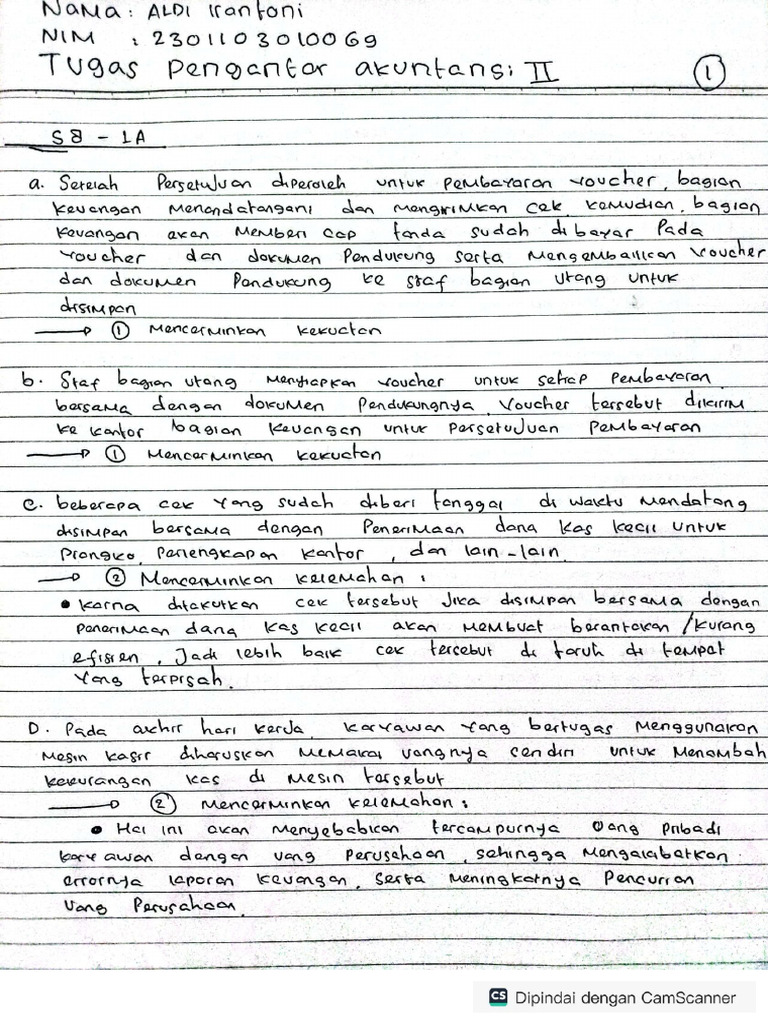 Nama : ALDI Irantoni
NIM : 2301103010069
Tugas Pengantar akuntansi II
1
S8 - 1A
a. Setelah Persetujuan diperoleh untuk pembayaran voucher, bagian
keuangan menandatangani dan mengirimkan cek. kemudian, bagian
keuangan akan memberi cap tanda sudah dibayar Pada
voucher dan dokumen Pendukung serta mengembalikan voucher
dan dokumen Pendukung ke staf bagian utang untuk
disimpan
→ ① Mencerminkan kekuatan
b. Staf bagian utang menyiapkan voucher untuk setiap Pembayaran
bersama dengan dokumen Pendukungnya. Voucher tersebut dikirim
ke kantor bagian keuangan untuk Persetujuan Pembayaran
→ ① Mencerminkan kekuatan
C. beberapa cek yang sudah diberi tanggal di waktu mendatang
disimpan bersama dengan Penerimaan dana kas kecil untuk
Prangko, Perlengkapan kantor, dan lain-lain.
→ ② Mencerminkan kelemahan :
• Karna ditakutkan cek tersebut Jika disimpan bersama dengan
penerimaan dana kas kecil akan membuat berantakan / kurang
efisien, Jadi lebih baik cek tersebut di taruh di tempat
Yang terpisah.
D. Pada akhir hari kerja, karyawan yang bertugas menggunakan
mesin kasir diharuskan memakai uangnya sendiri untuk menambah
kekurangan kas di mesin tersebut
→ ② Mencerminkan kelemahan :
• Hal ini akan menyebabkan tercampurnya uang pribadi
karyawan dengan uang perusahaan, sehingga mengakibatkan
errornya laporan keuangan, serta meningkatnya Pencurian
Uang Perusahaan.
CS Dipindai dengan CamScanner